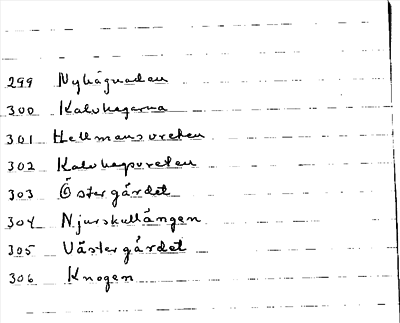 299 Nyhågnaden
300 Kalvhagarna
301 Hellmansvreten
302 Kalvhagsvreten
303 Östergärdet
304 Njurskullängen
305 Västergärdet
306 Knogen